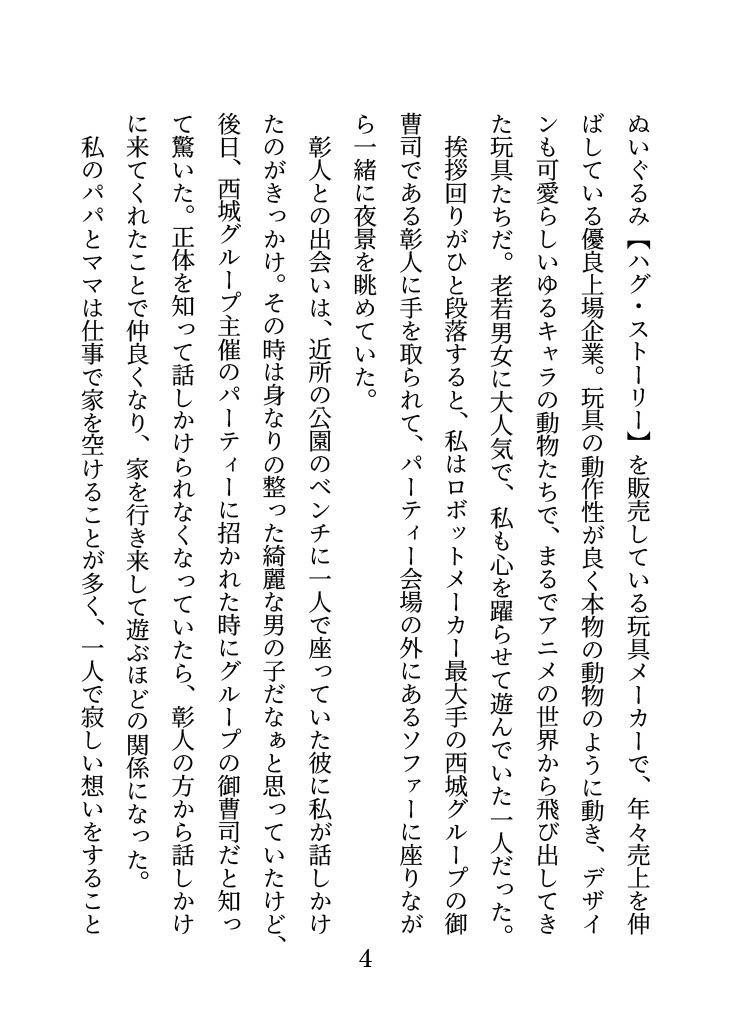 ぬいぐるみ【ハグ・ストーリー】を販売している玩具メーカーで、年々売上を伸
ばしている優良上場企業。玩具の動作性が良く本物の動物のように動き、デザイ
ンも可愛らしいゆるキャラの動物たちで、まるでアニメの世界から飛び出してき
た玩具たちだ。老若男女に大人気で、私も心を躍らせて遊んでいた一人だった。
挨拶回りがひと段落すると、私はロボットメーカー最大手の西城グループの御
曹司である彰人に手を取られて、パーティー会場の外にあるソファーに座りなが
ら一緒に夜景を眺めていた。
彰人との出会いは、近所の公園のベンチに一人で座っていた彼に私が話しかけ
たのがきっかけ。その時は身なりの整った綺麗な男の子だなぁと思っていたけど、
後日、西城グループ主催のパーティーに招かれた時にグループの御曹司だと知っ
て驚いた。正体を知って話しかけられなくなっていたら、彰人の方から話しかけ
に来てくれたことで仲良くなり、家を行き来して遊ぶほどの関係になった。
私のパパとママは仕事で家を空けることが多く、一人で寂しい想いをすること
4